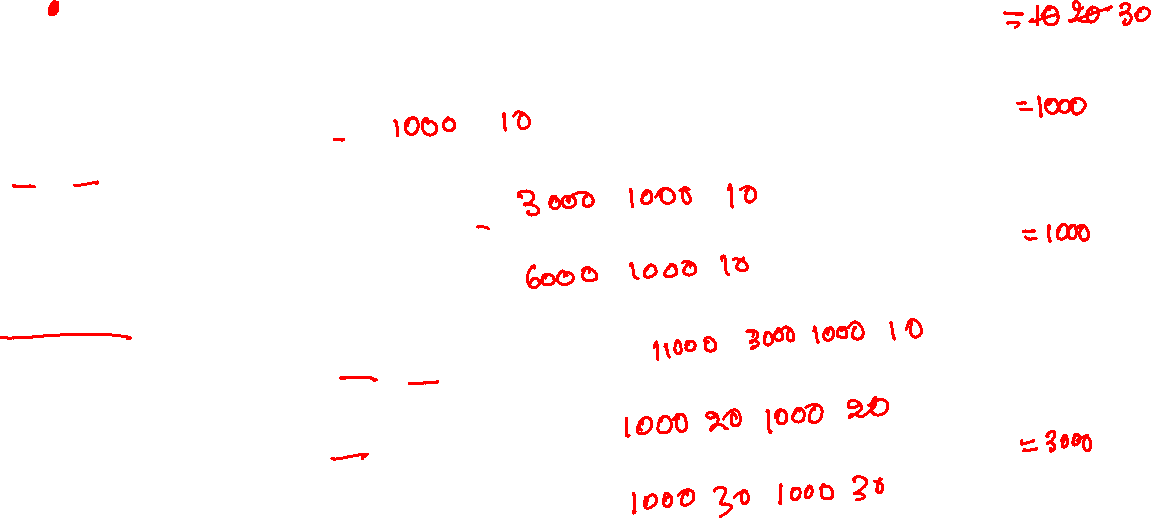 = 10 20 30
= 1000
- 1000 10
3000 1000 10
= 1000
6000 1000 10
11000 3000 1000 10
1000 20 1000 20
= 3000
1000 30 1000 30